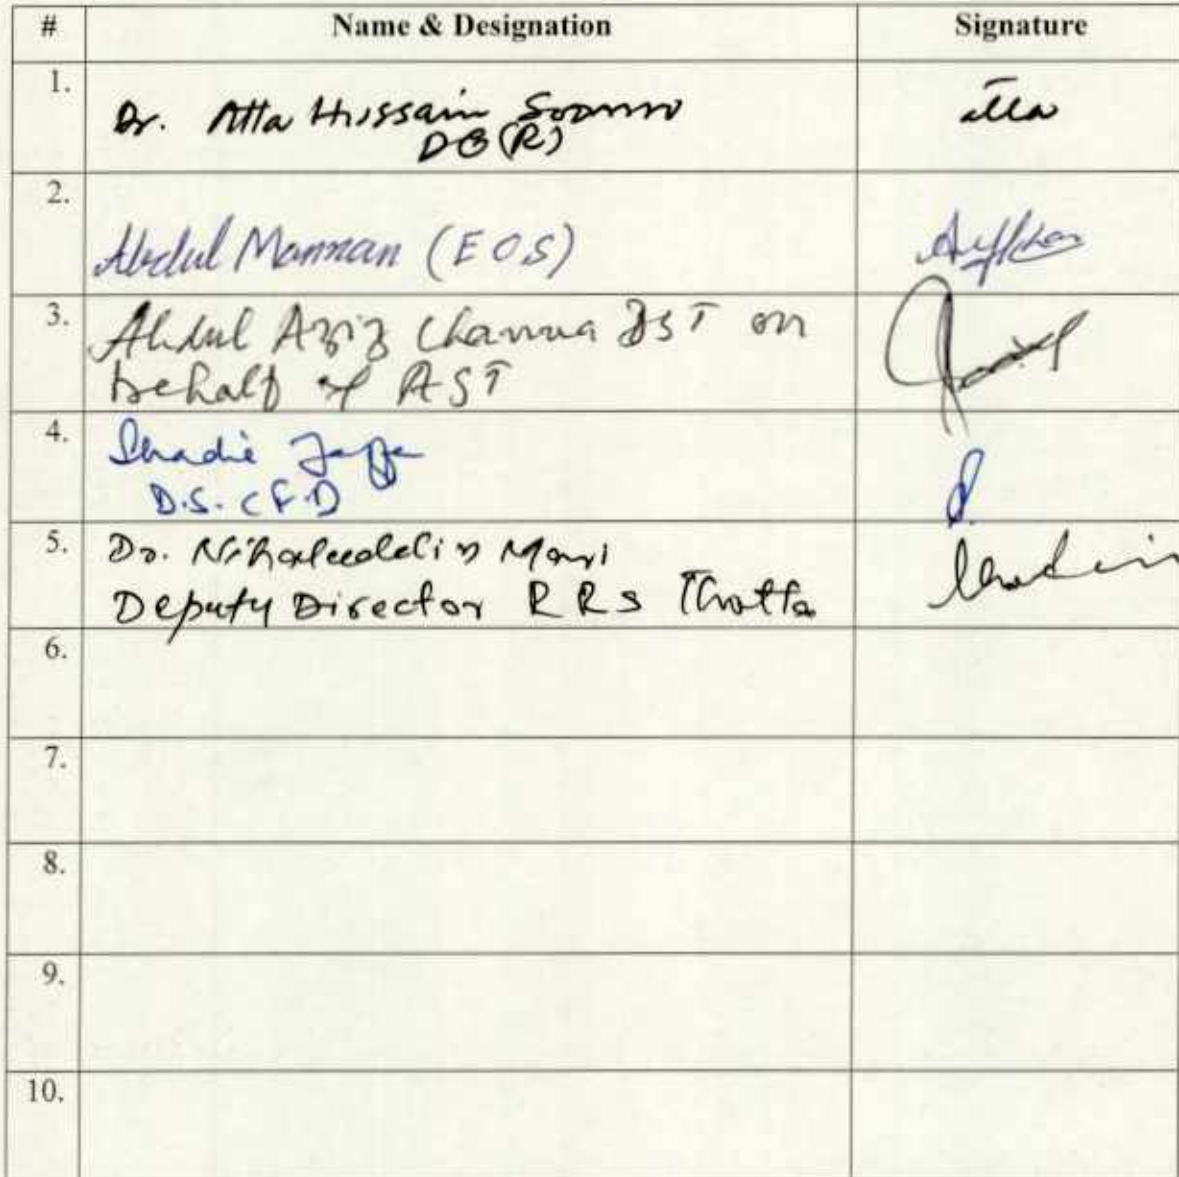 # Name & Designation Signature
1. Dr. Atta Hussain Soomro atta
DG (R)
2. Abdul Mannan (EOS)
3. Abdul Aziz Channa DST on
behalf of AST
4. Shadie
D.S. (F.D)
5. Dr. Nihaluddin Mari
Deputy Director RRS Thatta
6.
7.
8.
9.
10.